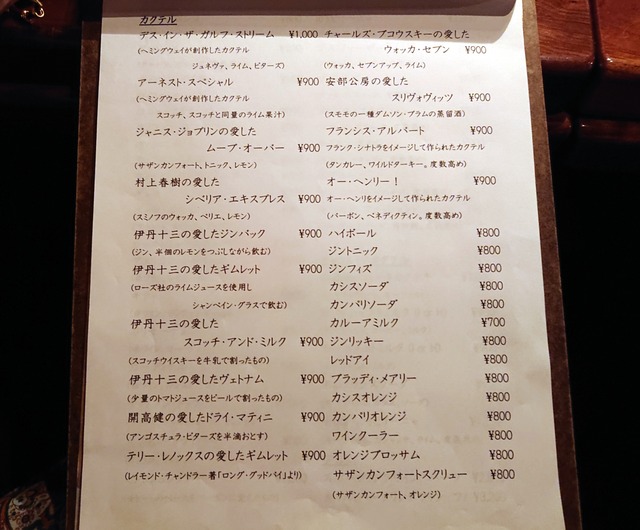 カクテル
デス・イン・ザ・ガルフ・ストリーム ¥1,000
(ヘミングウェイが創作したカクテル
ジュネヴァ、ライム、ビターズ)
アーネスト・スペシャル ¥900
(ヘミングウェイが創作したカクテル
スコッチ、スコッチと同量のライム果汁)
ジャニス・ジョプリンの愛した
ムーブ・オーバー ¥900
(サザンカンフォート、トニック、レモン)
村上春樹の愛した
シベリア・エキスプレス ¥900
(スミノフのウォッカ、ペリエ、レモン)
伊丹十三の愛したジンバック ¥900
(ジン、半個のレモンをつぶしながら飲む)
伊丹十三の愛したギムレット ¥900
(ローズ社のライムジュースを使用し
シャンペイン・グラスで飲む)
伊丹十三の愛した
スコッチ・アンド・ミルク ¥900
(スコッチウイスキーを牛乳で割ったもの)
伊丹十三の愛したヴェトナム ¥900
(少量のトマトジュースをビールで割ったもの)
開高健の愛したドライ・マティニ ¥900
(アンゴスチュラ・ビターズを半滴おとす)
テリー・レノックスの愛したギムレット ¥900
(レイモンド・チャンドラー著「ロング・グッドバイ」より)
チャールズ・ブコウスキーの愛した
ウォッカ・セブン ¥900
(ウォッカ、セブンアップ、ライム)
安部公房の愛した
スリヴォヴィッツ ¥900
(スモモの一種ダムソン・プラムの蒸留酒)
フランシス・アルバート ¥900
フランク・シナトラをイメージして作られたカクテル
(タンカレー、ワイルドターキー。度数高め)
オー・ヘンリー! ¥900
オー・ヘンリをイメージして作られたカクテル
(バーボン、ベネディクティン。度数高め)
ハイボール ¥800
ジントニック ¥800
ジンフィズ ¥800
カシスソーダ ¥800
カンパリソーダ ¥800
カルーアミルク ¥700
ジンリッキー ¥800
レッドアイ ¥800
ブラッディ・メアリー ¥800
カシスオレンジ ¥800
カンパリオレンジ ¥800
ワインクーラー ¥800
オレンジブロッサム ¥800
サザンカンフォートスクリュー ¥800
(サザンカンフォート、オレンジ)